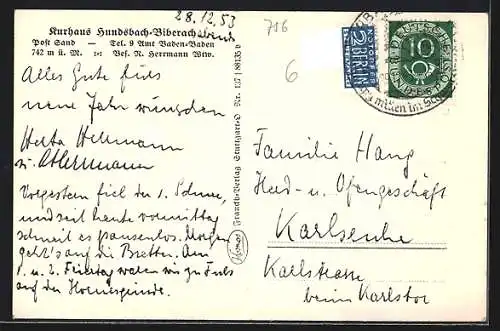 28.12.53
abends
706
Kurhaus Hundsbach-Biberach
Post Sand — Tel. 9 Amt Baden-Baden
742 m ü. M. — Bes. N. Herrmann Wtw.
6
NOTOPFER
2 BERLIN
STEUERMARKE
DEUTSCHE BUNDESPOST
10
Alles Gute fürs
neue Jahr wünschen
Herta Hermann
u.
Vorgestern fiel der 1. Schnee,
und seit heute vormittag
schneit es pausenlos. Morgen
geht's auf die Bretter. Am
1. u. 2. Feiertag waren wir zu Fuß
auf der Hornisgrinde.
Franckh-Verlag Stuttgart-O Nr. 127/88135 b
Familie Haug
Herd- u. Ofengeschäft
Karlsruhe
Karlstrasse
beim Karlstor